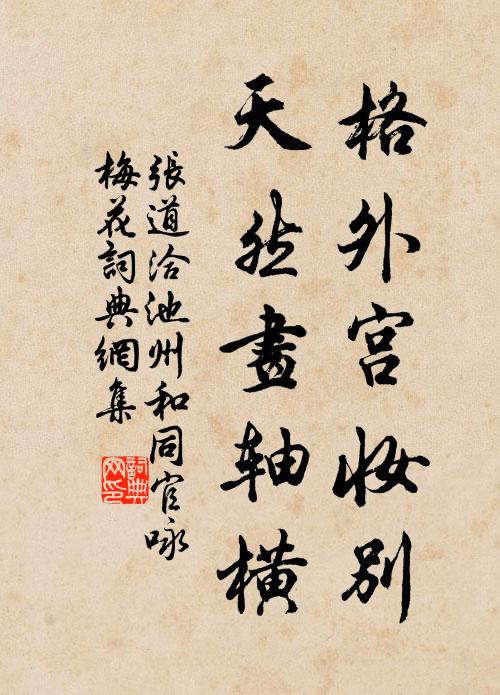 格外宫妆别
天然畫轴橫
張道洽池州和同官咏
梅花詞典網集
詞典
网印